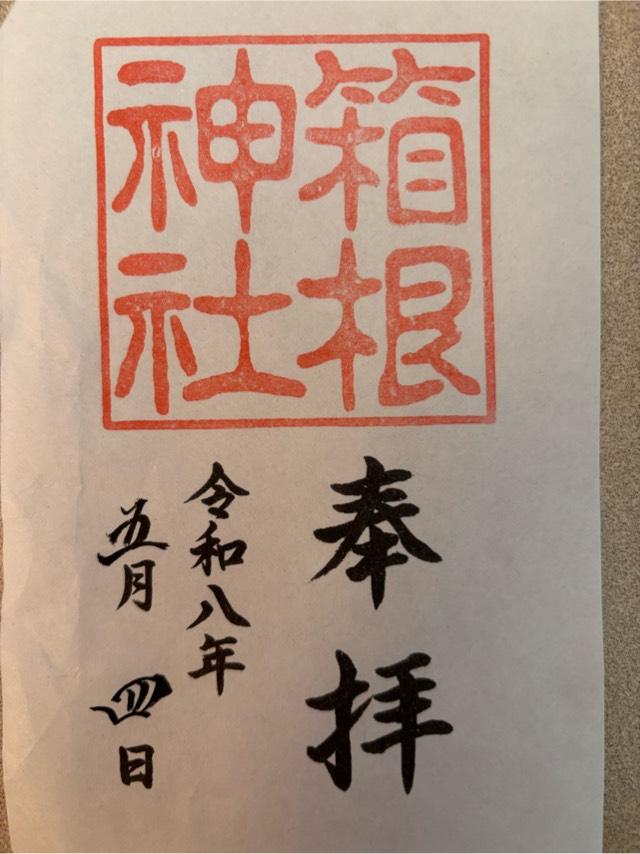 箱根
神社
奉拝
令和八年
五月四日